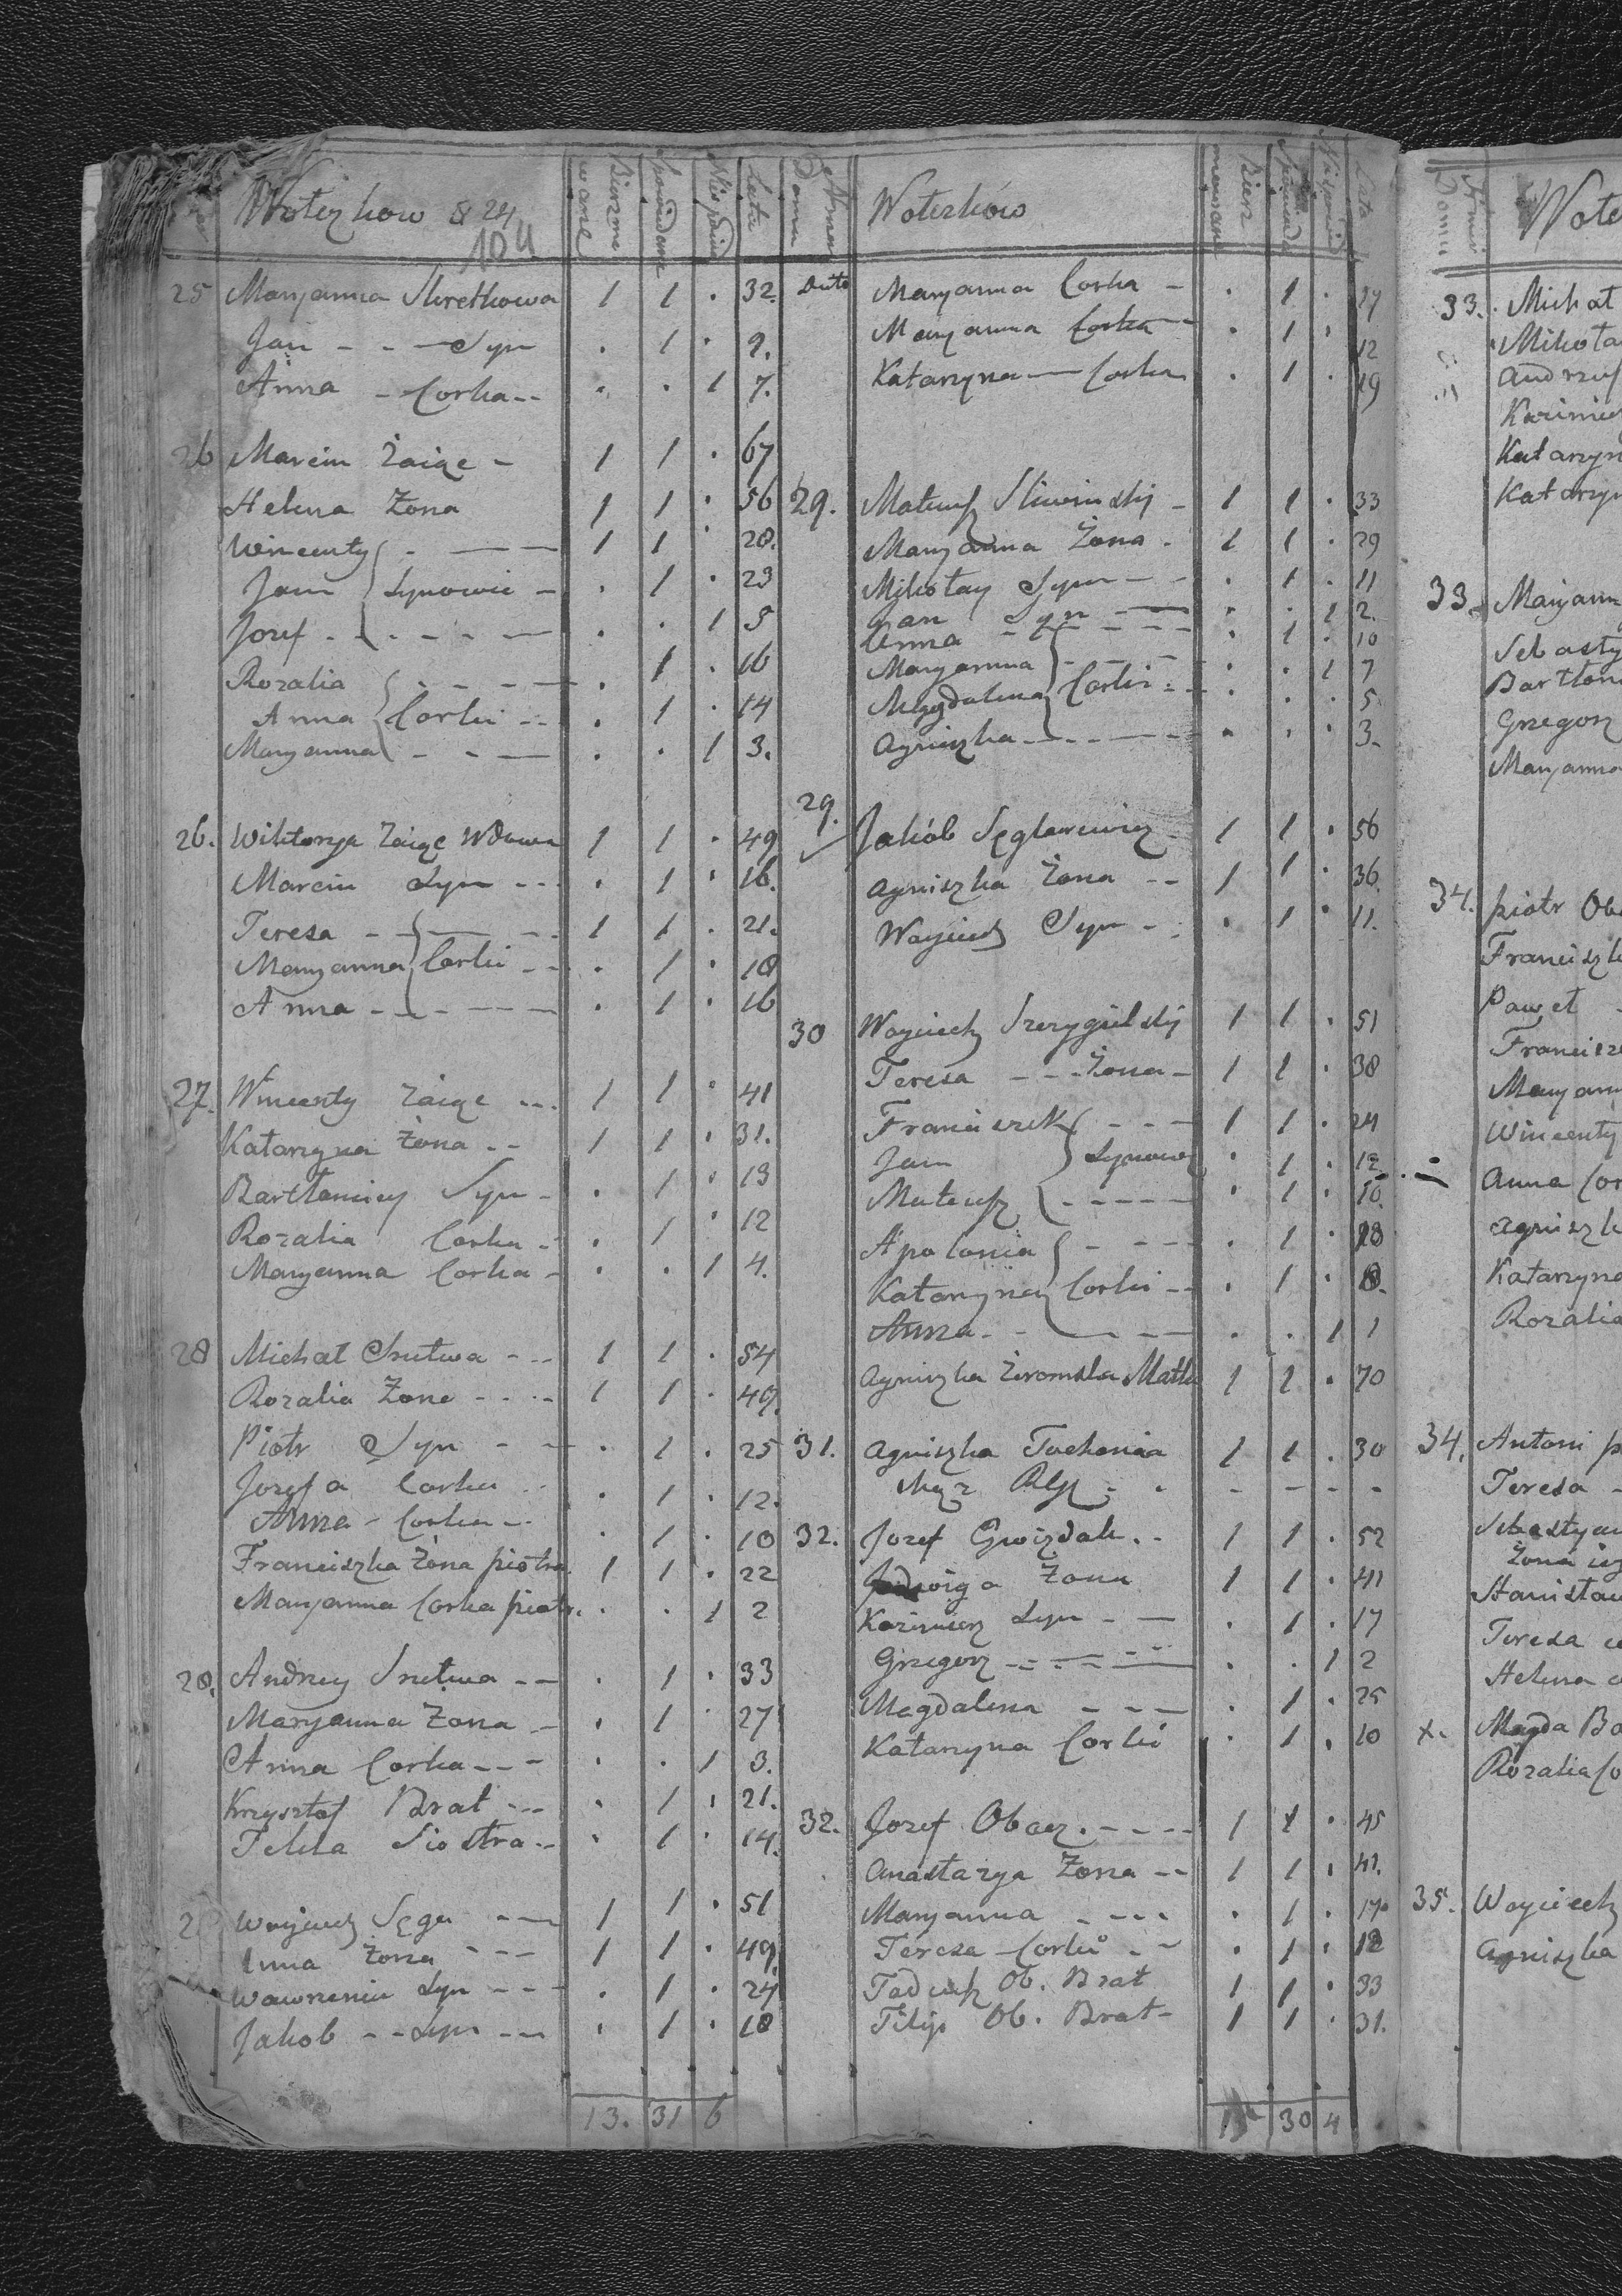 Woterkow 24
104
Bierzmo
wane
Spowidane
Lata
25 Maryanna Skretkowa 1 1 . 32.
Jan - - - Syn . 1 . 9.
Anna - Corka - - . . 1 7.
26 Marcin Zaiąc - 1 1 . 67
Helena Zona 1 1 . 56
Wincenty . - - - 1 1 . 28.
Jan Synowie - . 1 . 23
Jozef . - - - - . . 1 5
Rozalia - - - - . 1 . 16
Anna Corki - - . 1 . 14
Maryanna - - - . . 1 3.
26. Wiktorya Zaiąc Wdowa 1 1 . 49
Marcin Syn - - . 1 . 16.
Teresa - - - - 1 1 . 21.
Maryanna Corki - - . 1 . 18
Anna - - - - - . 1 . 16
27. Wincenty Zaiąc - - 1 1 . 41
Katarzyna Zona - - 1 1 . 31.
Bartłomiey Syn - . 1 . 13
Rozalia Corka - . 1 . 12
Maryanna Corka - . . 1 4.
28 Michał Snetwa - - 1 1 . 54
Rozalia Zona - - - 1 1 . 49.
Piotr Syn - - . 1 . 25
Jozefa Corka - - . 1 . 12.
Anna - Corka - . . 1 . 10
Franciszka Zona piotra 1 1 . 22
Maryanna Corka piotr. . . 1 2
28. Andrzey Snetwa - - . 1 . 33
Maryanna Zona - . 1 . 27
Anna Corka - - - . . 1 3.
Krzysztof Brat - - . 1 . 21.
Tekla Siostra - - . 1 . 14.
Woyciech - - - 1 1 . 51
Anna Zona - - - 1 1 . 49
Wawrzeniec Syn - - - . 1 . 24
Jakob - - Syn - - . 1 . 18
13. 31 6
Numer
Domu
Woterków
Bierz
mowane
Lata
Dito Maryanna Corka - . 1 . 17
Maryanna Corka - . 1 . 12
Katarzyna - Corka . 1 . 19
29. Mateusz Sliwinskij - 1 1 . 33
Maryanna Żona . 1 1 . 29
Mikołay Syn - - . 1 . 11
Jan Syn - - . . 1 2.
Anna - - - - . 1 . 10
Maryanna - - - . . 1 7
Magdalena Corki - - . . . 5
Agniszka - - - - . . . 3.
29. Jakób Sęglarewicz 1 1 . 56
Agniszka Żona - - 1 1 . 36.
Woyciech Syn - . . 1 . 11.
30 Woyciech Szczygielskij 1 1 . 51
Teresa - - - Zona - 1 1 . 38
Franciszek - - - 1 1 . 24
Jan Synowie . 1 . 12
Mateusz - - - - . 1 . 10.
Apolonia - - - . 1 . 18
Katarzyna Corki - - . 1 .
Anna - - - - - . . 1 1
Agniszka Zeromska Matka 1 1 . 70
31. Agniszka 1 1 . 30
Mąz - - - -
32. Jozef Gwizdak . - 1 1 . 52
Jadwiga Zona 1 1 . 41
Kazimierz Syn - - . 1 . 17
Grzegorz - - - - . . 1 2
Magdalena - - - . 1 . 25
Katarzyna Corki . 1 . 10
32. Jozef Obacz - - - - 1 1 . 45
Anastazya Zona - - 1 1 . 41.
Maryanna - - - . 1 . 17
Teresa - Corki - - . 1 . 12
Tadeusz Ob. Brat 1 1 . 33
Filip Ob. Brat - 1 1 . 31.
30 4
Numer
Domu
Wote
33. Michał
Mikoła
Andrzej
Kazimie
Katarzyn
Katarzyn
33. Maryann
Sebasty
Bartłom
Grzegorz
Maryanna
34. piotr Oba
Franciszk
Paweł -
Francisz
Maryann
Wincenty
Anna Cor
Agniszk
Katarzyna
Rozalia
34. Antoni p
Teresa -
Sebastyan
Zona ieg
Stanisław
Teresa c
Helena c
x. Magda Ba
Rozalia Co
35. Woyciech
Agniszka